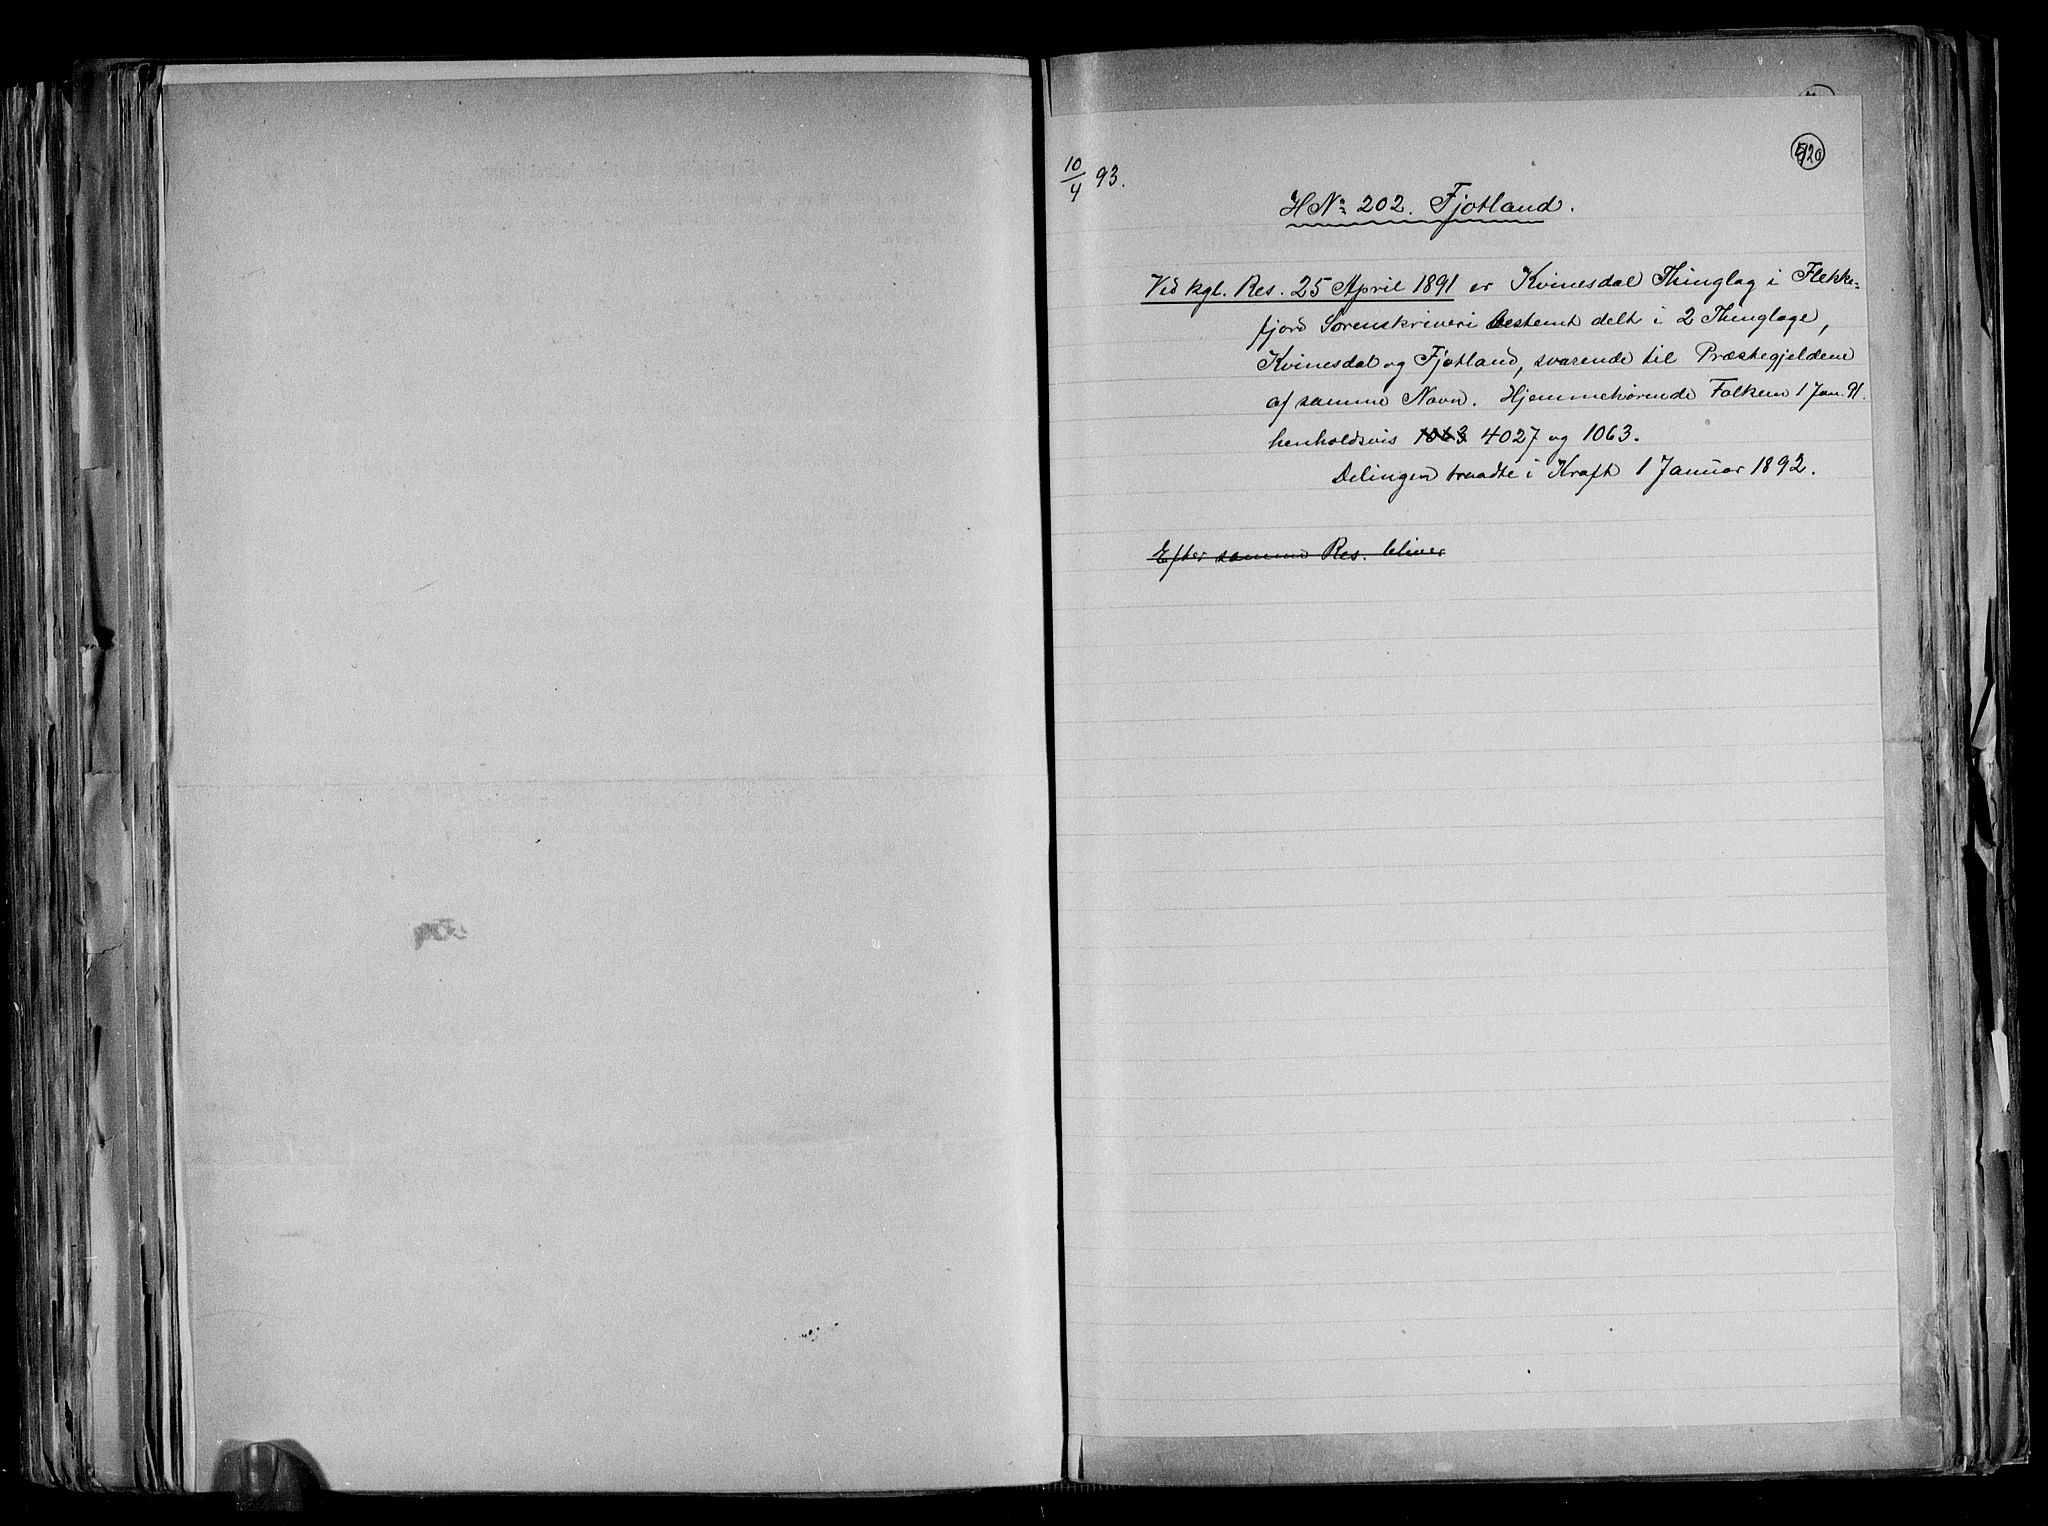 10/4 93.
H No 202. Fjotland.
Ved kgl. Res. 25 April 1891 er Kvinesdal Thinglag i Flekke-
fjord Sorenskriveri bestemt delt i 2 Thinglage,
Kvinesdal og Fjotland, svarende til Præstegjeldene
af samme Navn. Hjemmehørende Folkem 1 Jan. 91.
henholdsvis 1063 4027 og 1063.
Delingen traadte i Kraft 1 Januar 1892.
Efter samme Res. bliver